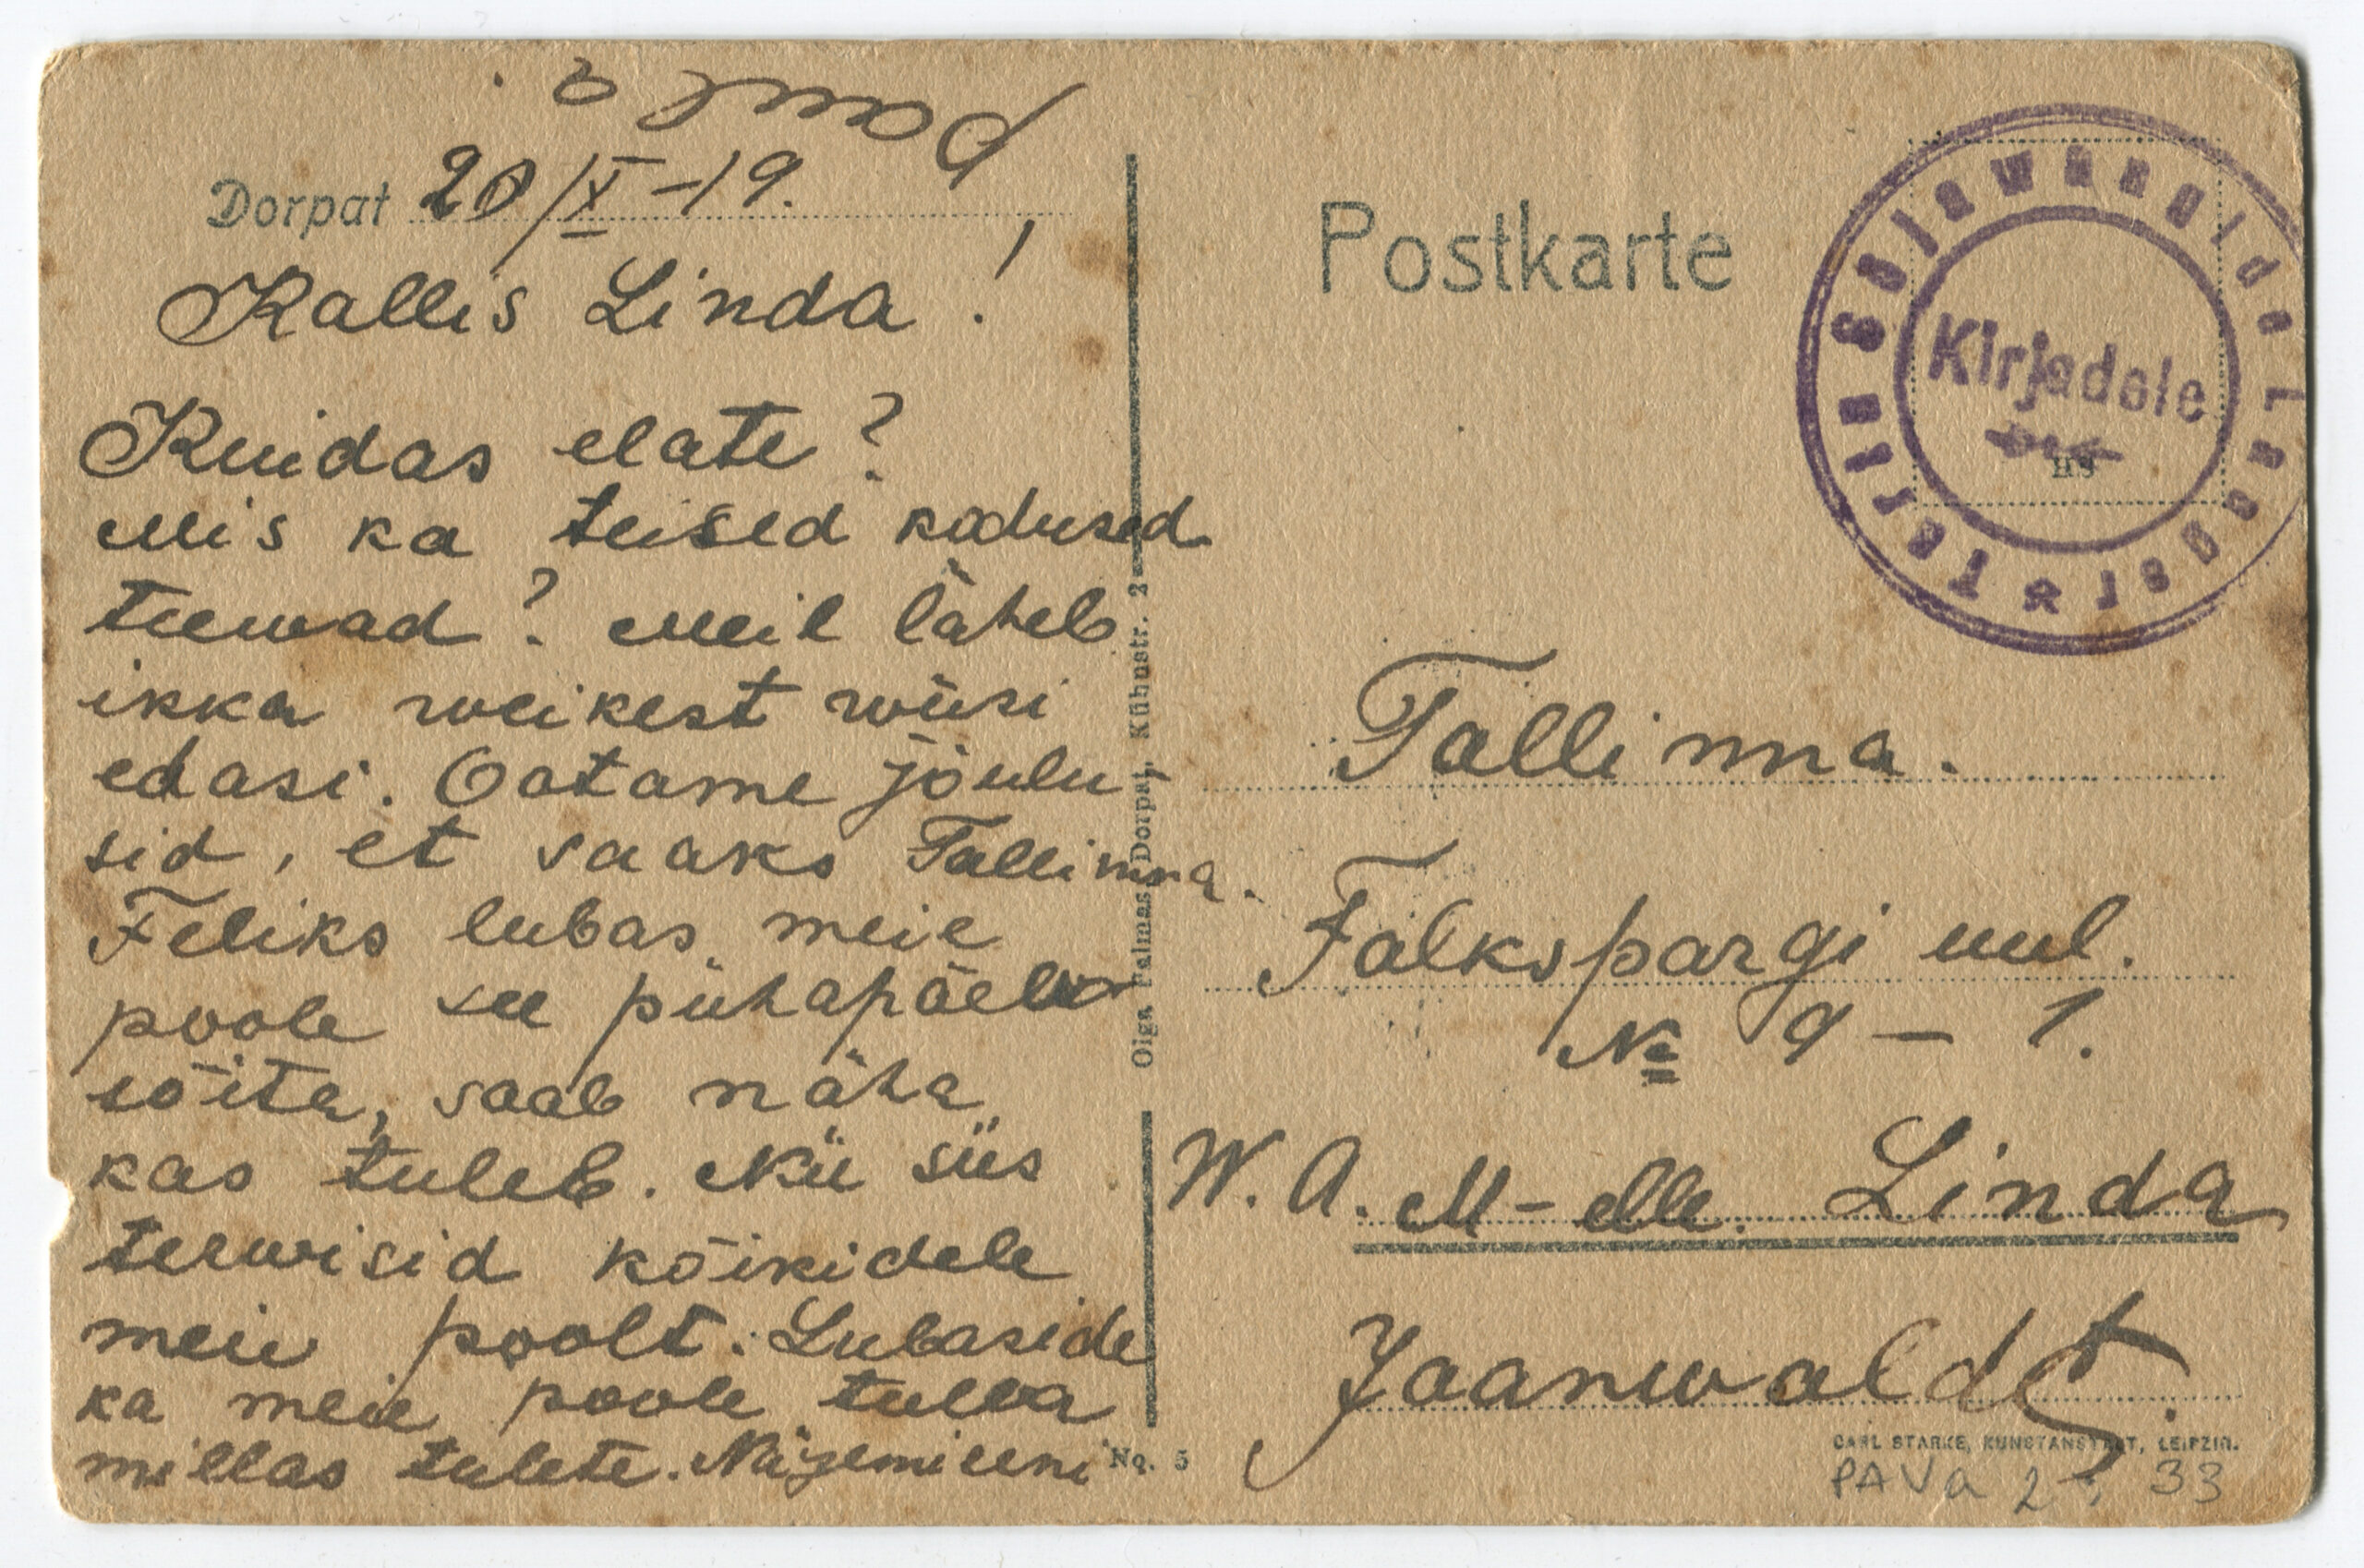 Dorpat 20/X-19.
Kallis Linda!
Kuidas elate?
Mis ka teised kodused
teewad? Meil läheb
ikka weikest wiisi
edasi. Ootame jõulu-
sid, et saaks Tallinna.
Feliks lubas meie
poole see pühapäew
sõita, saab näha
kas tuleb. Nii siis
terwisid kõikidele
meie poolt. Lubaside
ka meie poole tulla
millas tulete. Nägemiseni
Postkarte
Tartu Sõjawangide Laager
Kirjadele
Tallinna.
Falkspargi uul.
№ 9 – 1.
W. A. M-elle. Linda
Jaanwaldt.
Olga Palmas, Dorpat, Kühnstr. 2
No. 5
CARL STARKE, KUNSTANSTALT, LEIPZIG.
PAVa 2: 33